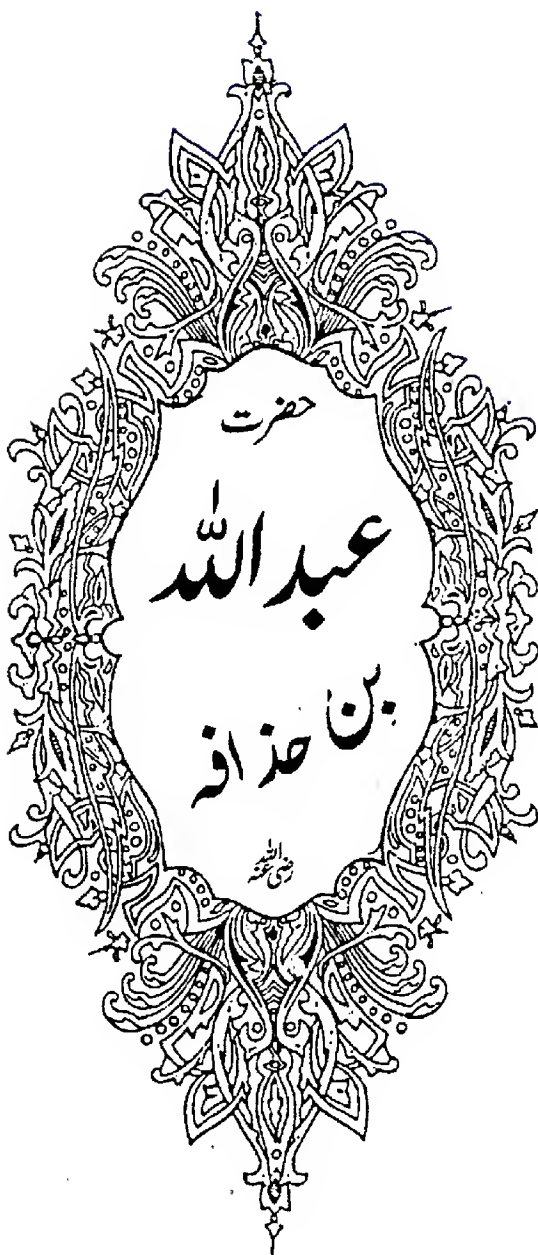 حضرت
عبداللہ
بن حذافہ
رضی اللہ عنہ